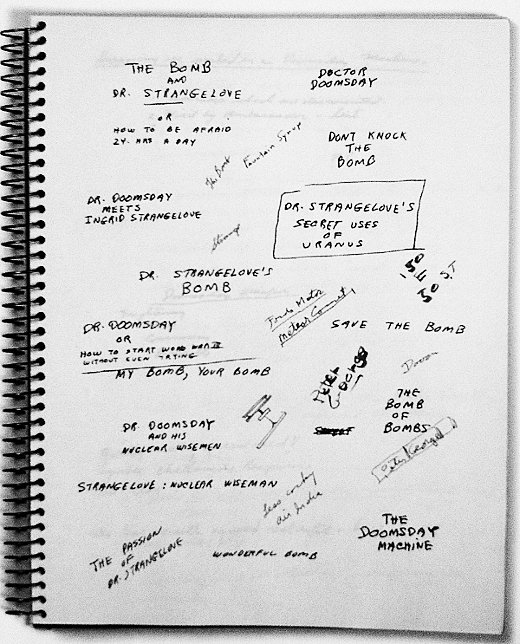 THE BOMB
AND
DR. STRANGELOVE
OR
HOW TO BE AFRAID
24 HRS A DAY
DOCTOR
DOOMSDAY
DONT KNOCK
THE
BOMB
The Bomb
Fountain Syrup
DR. DOOMSDAY
MEETS
INGRID STRANGELOVE
DR. STRANGELOVE'S
SECRET USES
OF
URANUS
Strange
DR. STRANGELOVE'S
BOMB
150
50
SAVE THE BOMB
DR. DOOMSDAY
OR
HOW TO START WORLD WAR III
WITHOUT EVEN TRYING
MY BOMB, YOUR BOMB
PETER
GEORGE
THE
BOMB
OF
BOMBS
DR. DOOMSDAY
AND HIS
NUCLEAR WISEMEN
Peter George
STRANGELOVE : NUCLEAR WISEMAN
Air India
THE PASSION
OF
DR. STRANGELOVE
WONDERFUL BOMB
THE
DOOMSDAY
MACHINE